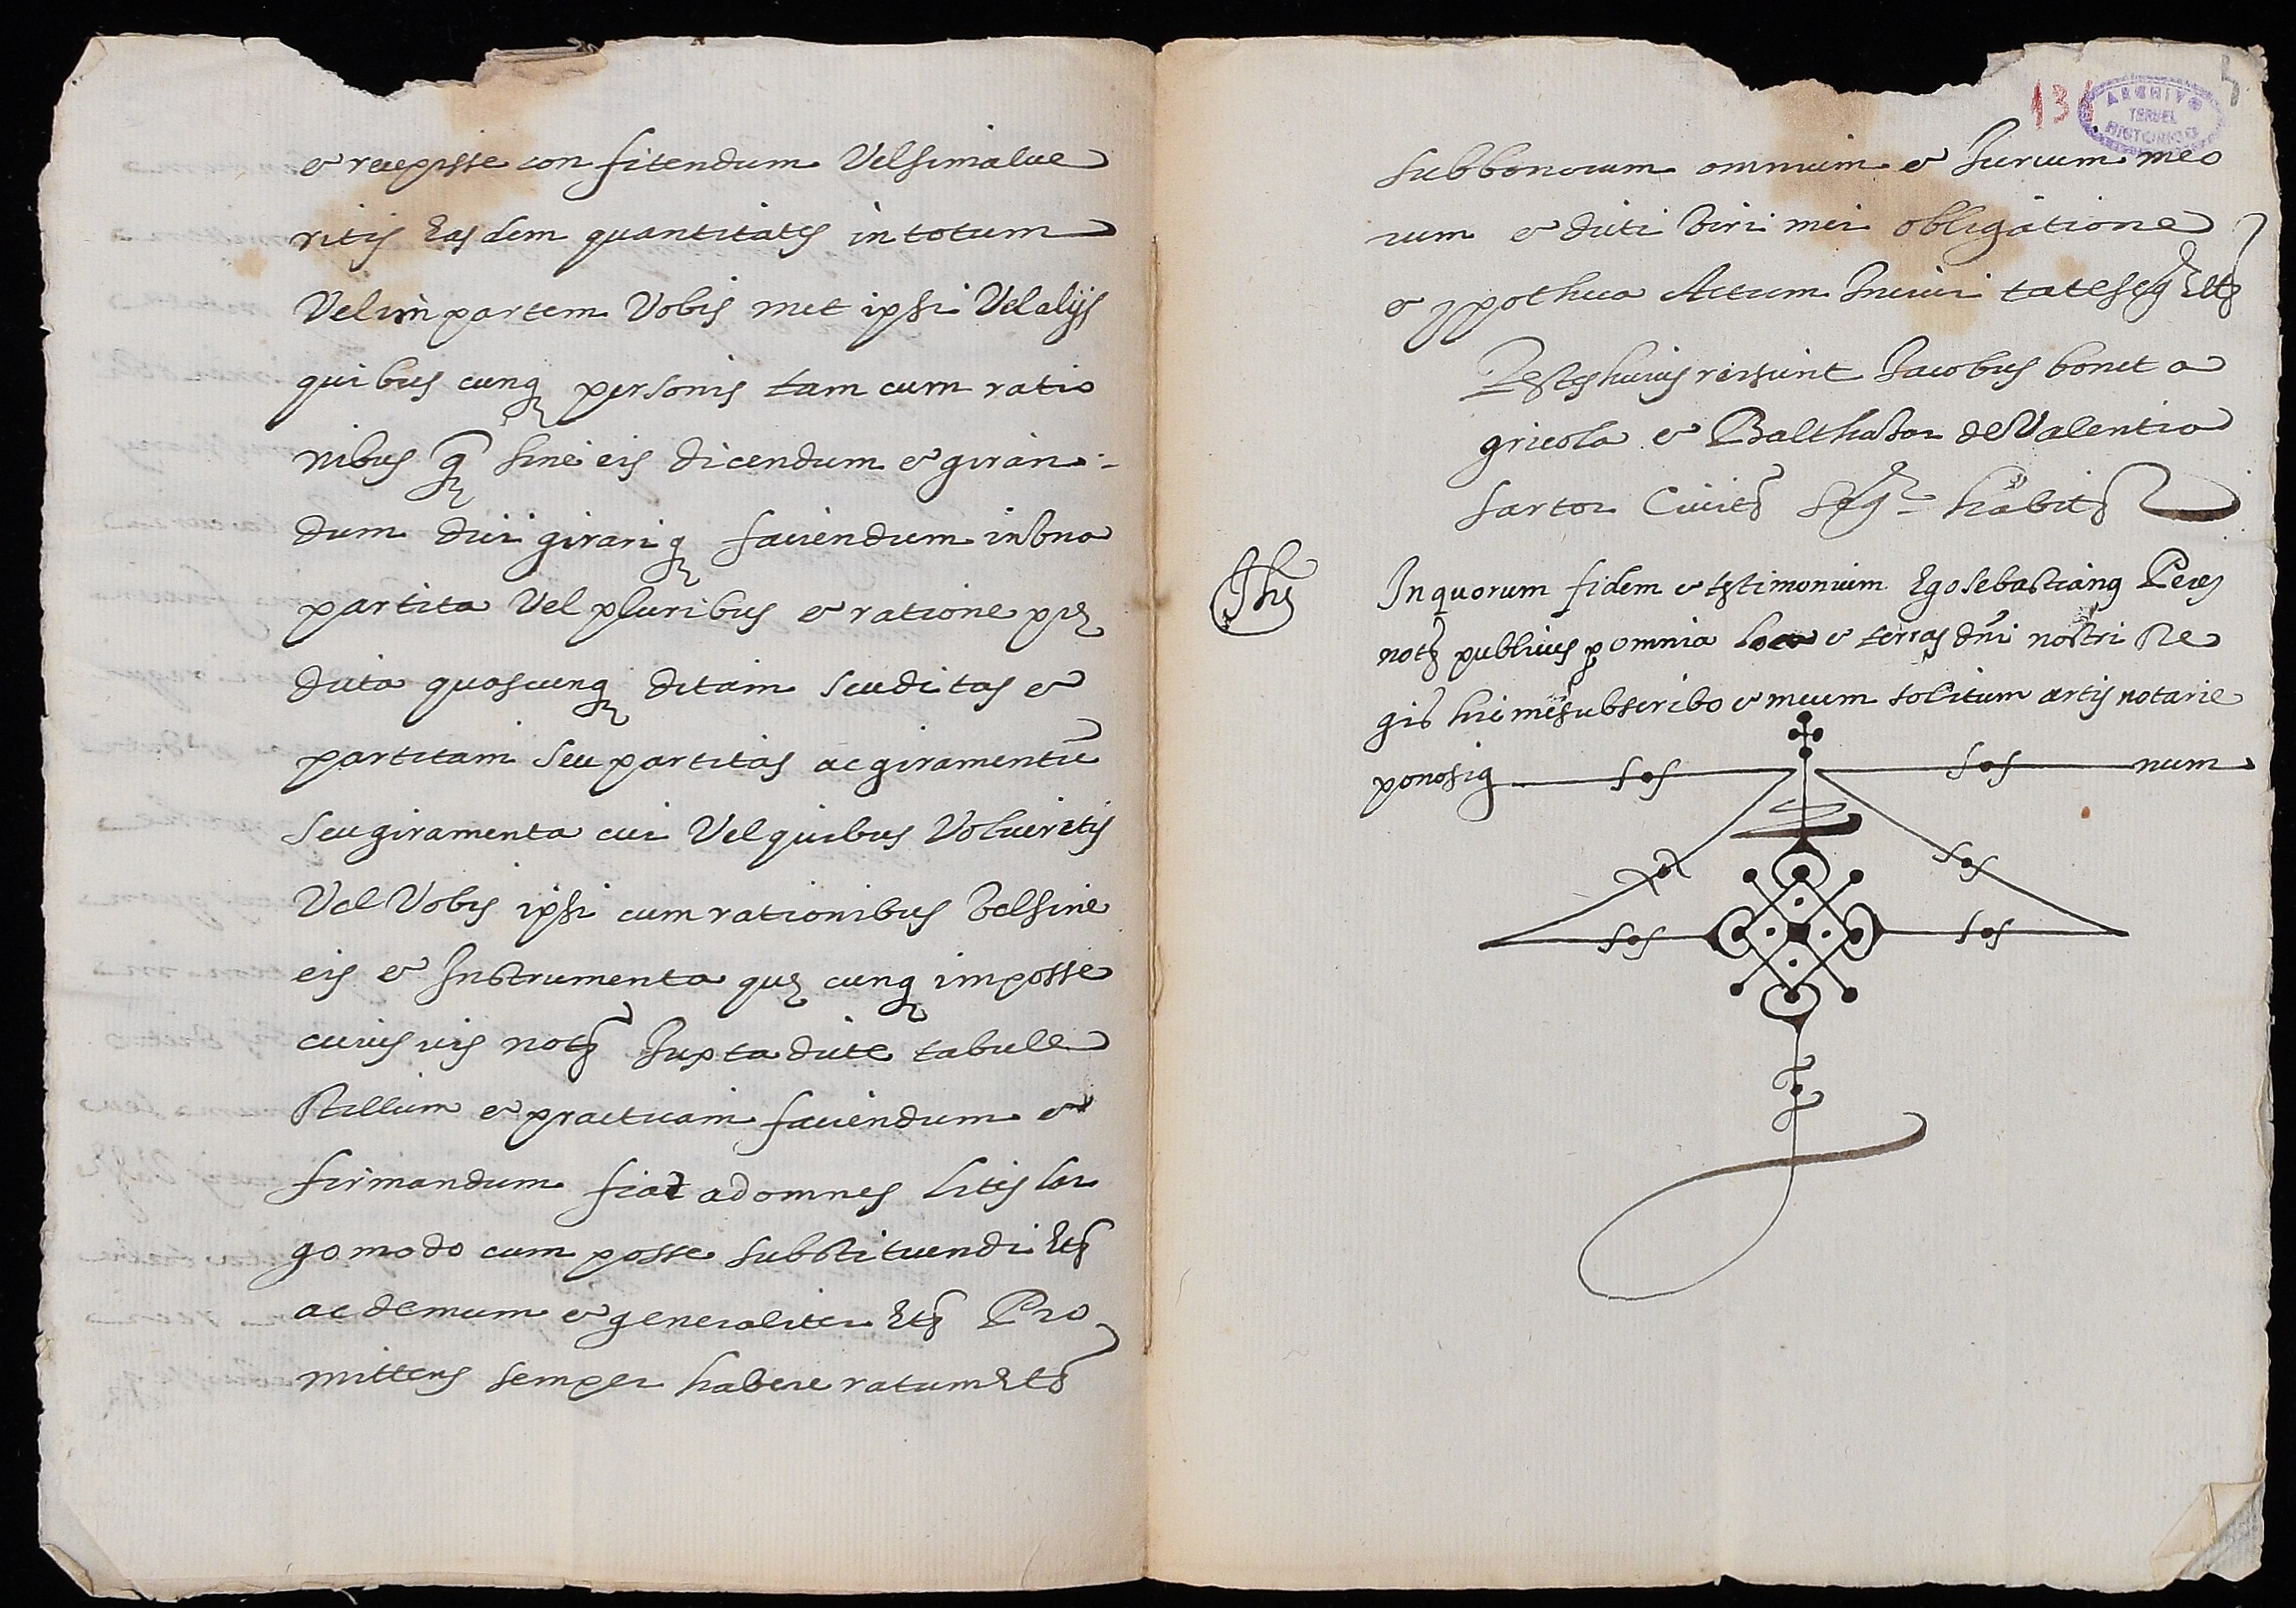 & recepisse confitendum Vel simalue
ritis Easdem quantitates in totum
Vel in partem Vobis met ipsi Vel alijs
quibus cunq personis tam cum ratio
nibus q sine eis dicendum & giran-
dum dici girariq faciendum in vna
partita Vel pluribus & ratione pre
dicta quascunq ditam seu ditas &
partitam seu partitas ac giramentū
seu giramenta cui Vel quibus Volueritis
Vel Vobis ipsi cum rationibus vel sine
eis & Instrumenta que cunq in posse
cuius vis not Juxta dicte tabule
stillum & practicam faciendum &
firmandum fiat ad omnes Litis lar
go modo cum posse substituendi Etc
ac demum & generaliter Etc Pro
mittens semper habere ratum Etc
131
ARCHIVO
TERUEL
HISTORICO
sub bonorum omnium & Jurium meo
rum & dicti viri mei obligatione
& ypotheca Actum In civi tate seg Etc
Testes huius rei sunt Jacobus bonet a
gricola & Balthasar de Valentia
sartor Civit seg habit
Jhs
In quorum fidem & testimonium Ego sebastianus Perez
not publicus p omnia loca & terras dñi nostri Re
gis hic me subscribo & meum solitum artis notarie
pono sig sos sos num
sos
sos sos